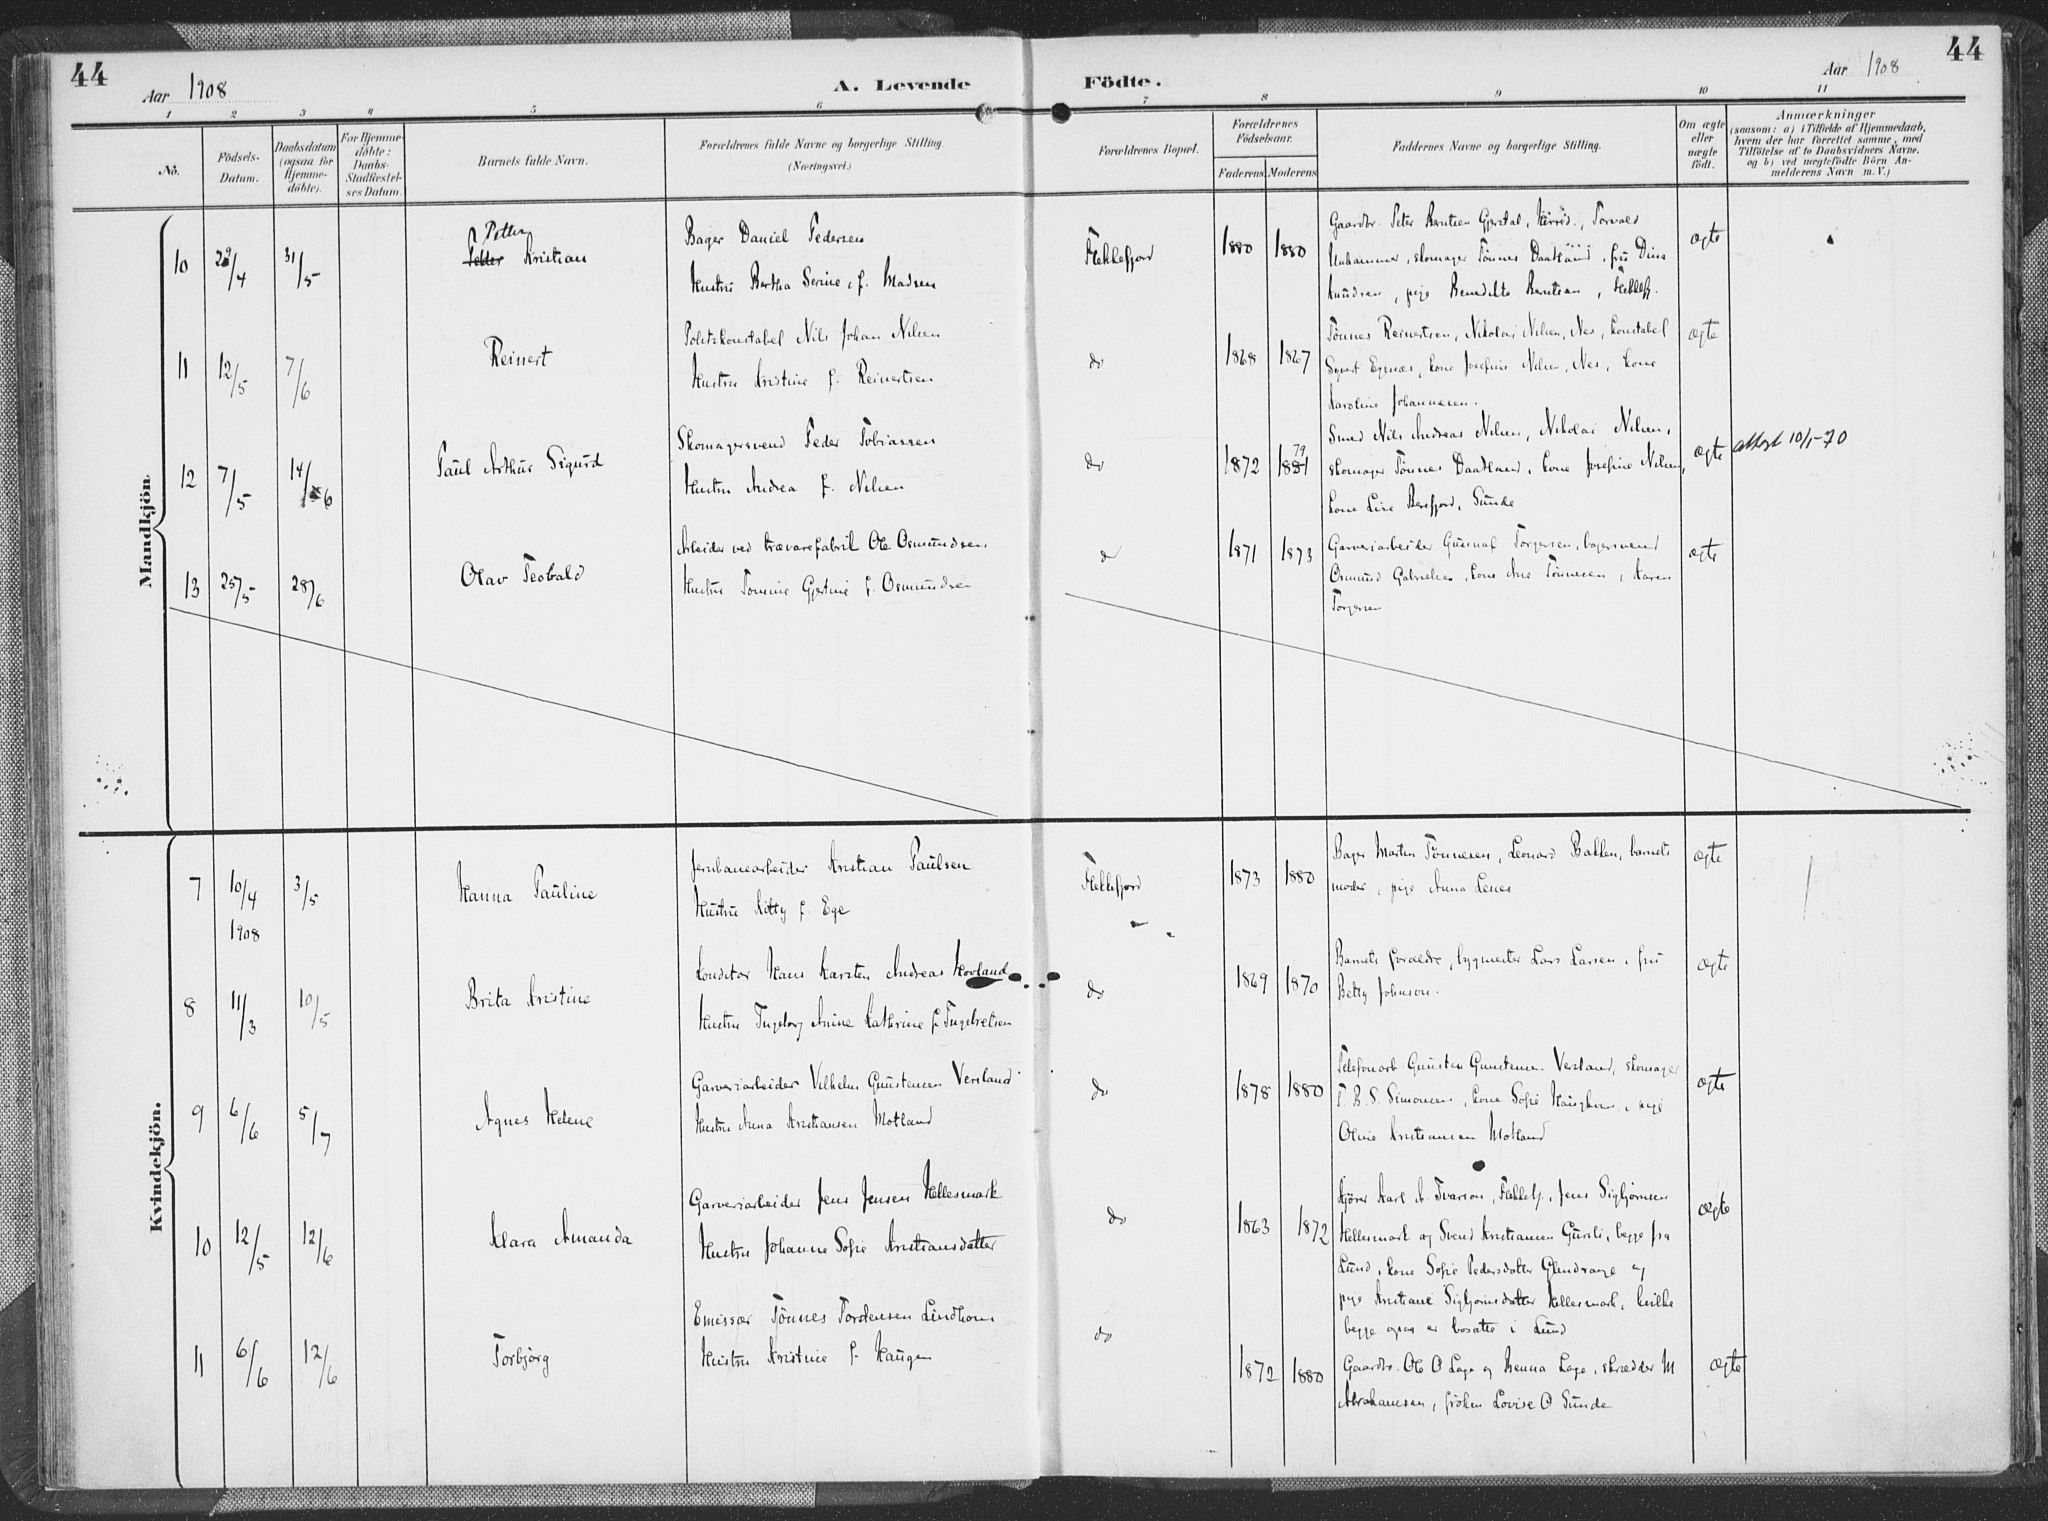 44
Aar 1908
A. Levende
Födte.
Aar 1908
44
1 2 3 4 5 6 7 8 9 10 11
No.
Födsels-
Datum.
Daabsdatum
(ogsaa for
Hjemme-
döbte).
For Hjemme-
döbte:
Daabs-
Stadfæstel-
ses Datum.
Barnets fulde Navn.
Forældrenes fulde Navne og borgerlige Stilling
(Næringsvei.)
Forældrenes Bopæl.
Forældrenes
Födselsaar.
Faderens
Moderens
Faddernes Navne og borgerlige Stilling.
Om ægte
eller
uægte
födt.
Anmærkninger
(saasom: a) i Tilfælde af Hjemmedaab,
hvem der har forrettet samme, med
Tilföielse af to Daabsvidners Navne,
og b) ved uægtefödte Börn An-
melderens Navn m. V.)
Mandkjön.
10 29/4 31/5
Petter
Kristian
Bager Daniel Pedersen
Hustru Bertha Serine, f. Madsen
Flekkefjord
1880 1880
Gaardbr. Peter Berntsen Gjerstal, Torvald
skomager Tönnes Daatland, fru Dina
Knudsen, pige Benedikte Berntsen, Flekkefj.
ægte
11 12/5 7/6
Reinert
Politikonstabel Nils Johan Nilsen
Hustru Kristine f. Reinertsen
do
1868 1867
Tönnes Reinertsen, Nikolai Nilsen, Nes, konstabel
Sigvart Egenæs, kone Josefine Nilsen, Nes, kone
Karoline Johannesen.
ægte
12 7/5 14/6
Paul Arthur Sigurd
Skomagersvend Peder Tobiassen
Hustru Andrea f. Nilsen
do
1872 1881
79
Smed Nils Andreas Nilsen, Nikolai Nilsen,
skomager Tönnes Daatland, kone Josefine Nilsen,
kone Lise Berefjord, Sunde
ægte
attest 10/1-70
13 25/5 28/6
Olav Teobald
Arbeider ved trævarefabrik Ole Osmundsen
Hustru Tomine Gjertine f. Osmundsen
do
1871 1873
Garveriarbeider Gunnuf Torgersen, bagersvend
Osmund Gabrielsen, kone Ane Tönnesen, Karen
Torgersen
ægte
Kvindekjön.
7 10/4 3/5
1908
Hanna Pauline
Jernbanearbeider Kristian Paulsen
Hustru Kitty f. Ege
Flekkefjord
1873 1880
Bager Martin Tönnesen, Leonard Bakken, barnets
moder, pige Anna Lenes
ægte
8 11/3 10/5
Brita Kristine
Konditor Hans Karsten Andreas Hovland
Hustru Ingeborg Anine Kathrine f. Ingebretsen
do
1869 1870
Barnets forældre, bygmester Lars Larsen, fru
Betty Johnson.
ægte
9 6/6 5/7
Agnes Helene
Garveriarbeider Vilhelm Gunstensen Versland
Hustru Anna Kristiansen Motland
do
1878 1880
Telefonarb. Gunsten Gunstensen Versland, skomager
P. B. S. Simonsen, kone Sofie Haughom, pige
Olivie Kristiansen Motland
ægte
10 12/5 12/6
Klara Amanda
Garveriarbeider Jens Jensen Hellesmark
Hustru Johanne Sofie Kristiansdatter
do
1863 1872
Kjörer Karl A. Ivarson, Flekkefj., Jens Sigbjörnsen
Hellesmark og Svend Kristiansen Gursli, begge fra
Lund, kone Sofie Pedersdatter Glendrange og
pige Kristiane Sigbjörnsdatter Hellesmark, hvilke
begge ogsaa er bosatte i Lund
ægte
11 6/6 12/6
Torbjörg
Emissær Tönnes Torstensen Lindhom
Hustru Kristine f. Haugen
do
1872 1880
Gaardbr. Ole O Laga og Henna Laga, skrædder M
Abrahamsen, fröken Lovise O Sunde
ægte